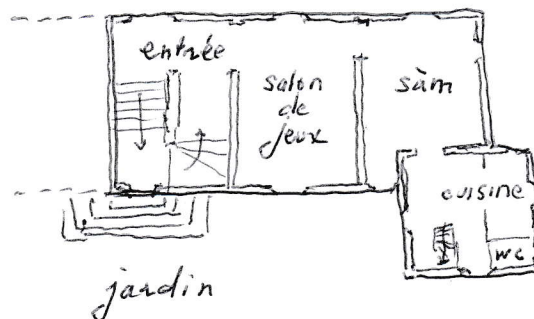 entrée
salon
de
jeux
sàm
cuisine
wc
jardin